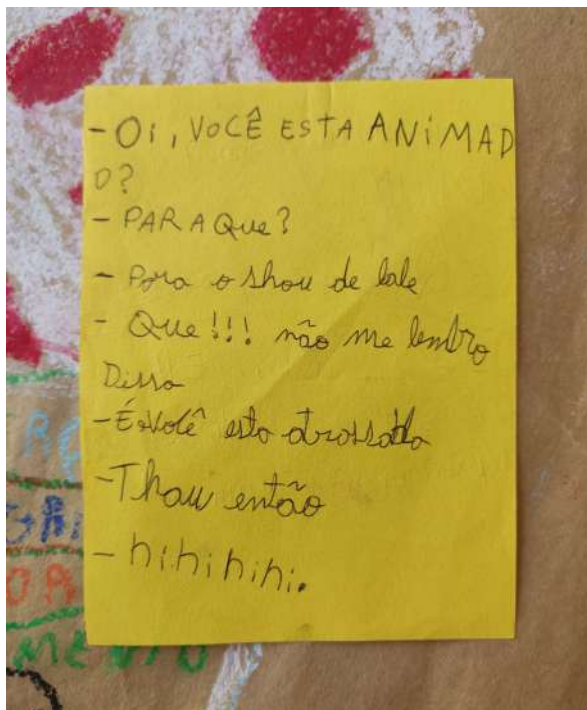 - Oi, VOCÊ ESTA ANIMAD
O?
- PARA QUe?
- Para o shou de bale
- Que!!! não me lembro
Disso
- É você esta atrossado
- Thau então
- hihihihi.
MENTO